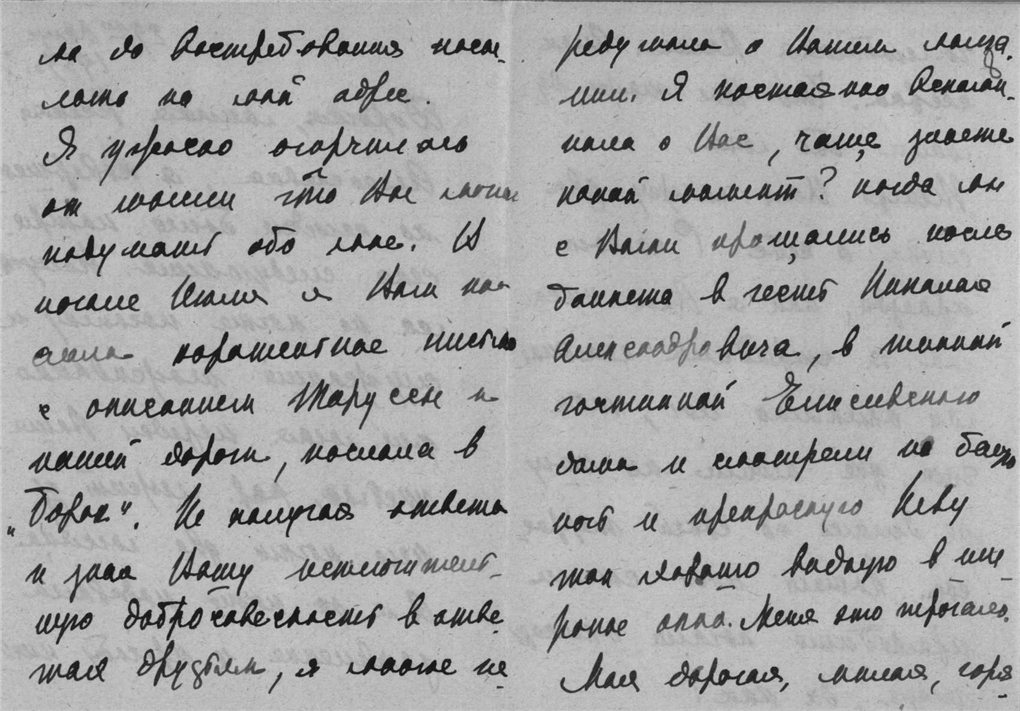 ла до востребования посы-
лать на мой адрес.
Я ужасно огорчилась
от мысли что Вас могла
подумать обо мне. В
начале Июля я Вам на
писала поразительное письмо
с описанием Тарусы и
нашей дороги, послала в
"Борок". Не получая ответа
и зная Вашу исключитель-
ную добросовестность в отве-
тах друзьям, я многое пе-
редумала о Вашем молча
нии. Я постоянно вспоми-
нала о Вас, чаще знаете
какой момент? когда мы
с Вами прощались после
банкета в честь Николая
Александровича, в темной
гостинной Елисеевского
дома и смотрели на
мост и прекрасную Неву
так хорошо видную в ши-
рокое окно. Меня это трогало.
Моя дорогая, милая, горя